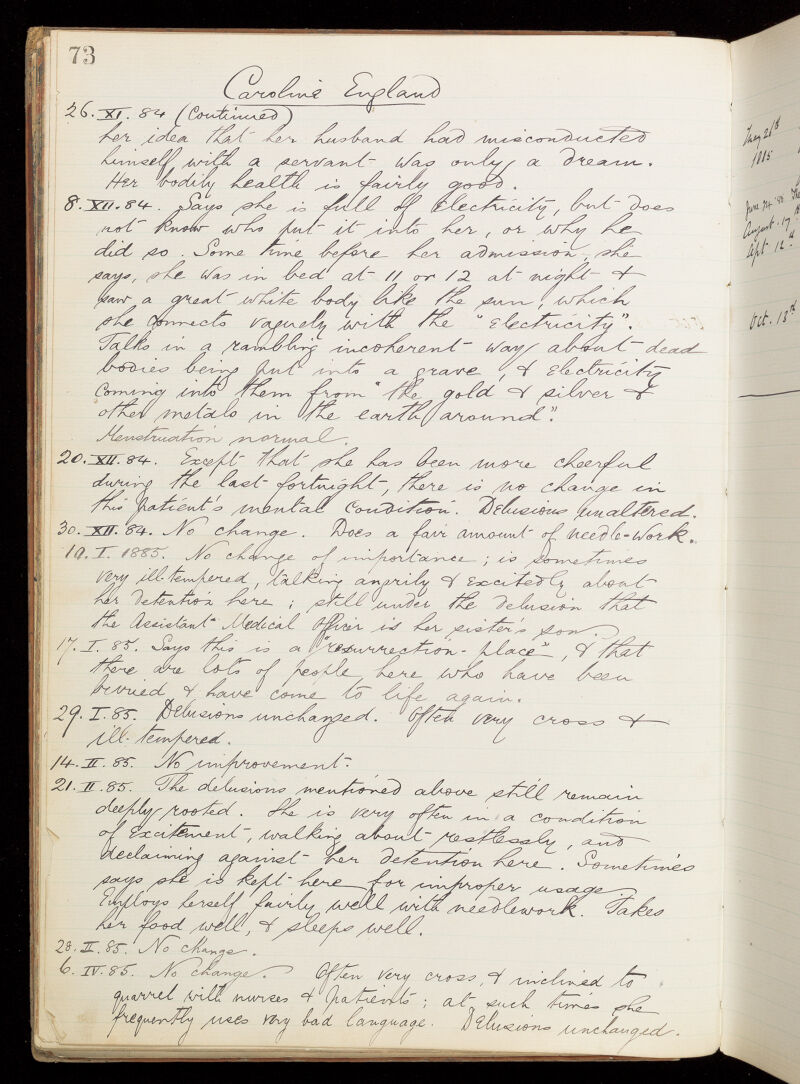 73
Caroline England
26. XI. 84 (Continued)
her idea that her husband had misconducted
himself with a servant was only a dream.
Her bodily health is fairly good.
8. XII. 84. Says she is full of Electricity, but does
not know who put it into her, or why he
did so. Some time before her admission, she
says, she was in bed at 11 or 12 at night &
saw a great white body like the sun, which
she connects vaguely with the "Electricity".
Talks in a rambling incoherent way about dead
bodies being put into a grave, & Electricity
coming into them from "the gold & silver &
other metals in the earth around".
Menstruation normal.
20. XII. 84. Except that she has been more cheerful
during the last fortnight, there is no change in
this patient's mental condition. Delusions unaltered.
30. XII. 84. No change. Does a fair amount of needle-work.
10. I. 1885. No change of importance; is sometimes
very ill-tempered, talking angrily & excitedly about
her detention here; still under the delusion that
the Assistant Medical Officer is her sister's son.
17. I. 85. Says this is a "resurrection-place", & that
there are lots of people here who have been
burried & have come to life again.
29. I. 85. Delusions unchanged. Often very cross &
ill-tempered.
14. II. 85. No improvement.
21. II. 85. The delusions mentioned above still remain
deeply rooted. She is very often in a condition
of Excitement, walking about restlessly, and
declaiming against her detention here. Sometimes
says she is kept here for improper usage.
Employs herself fairly well with needlework. Takes
her food well, & sleeps well.
28. II. 85. No change.
6. IV. 85. No change. Often very cross, & inclined to
quarrel with nurses & patients; at such times she
frequently uses very bad language. Delusions unchanged.
1885
August 17
Sept 12th
Oct. 13th